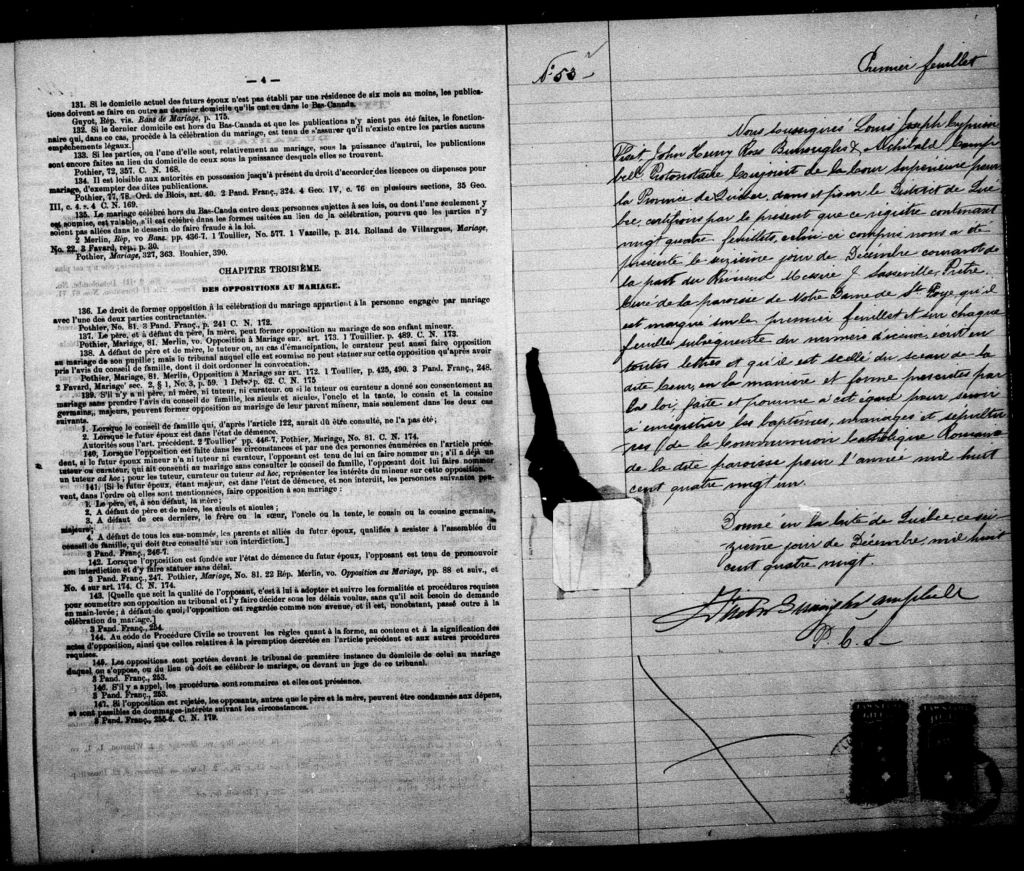 — 4 —
131. Si le domicile actuel des futurs époux n'est pas établi par une résidence de six mois au moins, les publica-
tions doivent se faire en outre au dernier domicile qu'ils ont eu dans le Bas-Canada.
Guyot, Rép. vis. Bans de Mariage, p. 175.
132. Si le dernier domicile est hors du Bas-Canada et que les publications n'y aient pas été faites, le fonction-
naire qui, dans ce cas, procède à la célébration du mariage, est tenu de s'assurer qu'il n'existe entre les parties aucuns
empêchements légaux.]
133. Si les parties, ou l'une d'elle sont, relativement au mariage, sous la puissance d'autrui, les publications
sont encore faites au lieu du domicile de ceux sous la puissance desquels elles se trouvent.
Pothier, 72, 357. C. N. 168.
134. Il est loisible aux autorités en possession jusqu'à présent du droit d'accorder des licences ou dispenses pour
mariage, d'exempter des dites publications.
Pothier, 77, 78. Ord. de Blois, art. 40. 2 Pand. Franç., 324. 4 Geo. IV, c. 76 en plusieurs sections, 35 Geo.
III, c. 4, s. 4 C. N. 169.
135. Le mariage célébré hors du Bas-Canada entre deux personnes sujettes à ses lois, ou dont l'une seulement y
est soumise, est valable, s'il est célébré dans les formes usitées au lieu de la célébration, pourvu que les parties n'y
soient pas allées dans le dessein de faire fraude à la loi.
2 Merlin, Rép, vo Bans. pp. 436-7. 1 Toullier, No. 577. 1 Vazeille, p. 314. Rolland de Villargues, Mariage,
No. 22. 3 Favard, rep., p. 30.
Pothier, Mariage, 327, 363. Bouhier, 390.
CHAPITRE TROISIÈME.
DES OPPOSITIONS AU MARIAGE.
136. Le droit de former opposition à la célébration du mariage appartient à la personne engagée par mariage
avec l'une des deux parties contractantes.
Pothier, No. 81. 3 Pand. Franç., p. 241 C. N. 172.
137. Le père, et à défaut du père, la mère, peut former opposition au mariage de son enfant mineur.
Pothier, Mariage, 81. Merlin, vo. Opposition à Mariage sur. art. 173. 1 Toullier, p. 489. C. N. 173.
138. A défaut de père et de mère, le tuteur ou, au cas d'émancipation, le curateur peut aussi faire opposition
au mariage de son pupille; mais le tribunal auquel elle est soumise ne peut statuer sur cette opposition qu'après avoir
pris l'avis du conseil de famille, dont il doit ordonner la convocation.
Pothier, Mariage, 81. Merlin, Opposition à Mariage sur art. 172. 1 Toullier, p. 425, 490. 3 Pand. Franç., 248.
2 Favard, Mariage' sec. 2, § 1, No. 3, p. 59. 1 p. 62. C. N. 175
139. S'il n'y a ni père, ni mère, ni tuteur, ni curateur, ou si le tuteur ou curateur a donné son consentement au
mariage sans prendre l'avis du conseil de famille, les aïeuls et aïeules, l'oncle et la tante, le cousin et la cousine
germains, majeurs, peuvent former opposition au mariage de leur parent mineur, mais seulement dans les deux cas
suivants.
1. Lorsque le conseil de famille qui, d'après l'article 122, aurait dû être consulté, ne l'a pas été;
2. Lorsque le futur époux est dans l'état de démence.
Autorités sous l'art. précédent. 2 Toullier' pp. 446-7, Pothier, Mariage, No. 81. C. N. 174.
140. Lorsque l'opposition est faite dans les circonstances et par une des personnes énumérées en l'article précé-
dent, si le futur époux mineur n'a ni tuteur ni curateur, l'opposant est tenu de lui en faire nommer un; s'il a déjà un
tuteur ou curateur, qui ait consenti au mariage sans consulter le conseil de famille, l'opposant doit lui faire nommer
un tuteur ad hoc; pour les tuteur, curateur ou tuteur ad hoc, représenter les intérêts du mineur sur cette opposition.
141. [Si le futur époux, étant majeur, est dans l'état de démence, et non interdit, les personnes suivantes peu-
vent, dans l'ordre où elles sont mentionnées, faire opposition à son mariage:
1. Le père, et, à son défaut, la mère;
2. A défaut de père et de mère, les aïeuls et aïeules;
3. A défaut de ces derniers, le frère ou la sœur, l'oncle ou la tante, le cousin ou la cousine germains,
majeurs;
4. A défaut de tous les sus-nommés, les parents et alliés du futur époux, qualifiés à assister à l'assemblée du
conseil de famille, qui doit être consulté sur son interdiction.]
3 Pand. Franç., 246-7.
142. Lorsque l'opposition est fondée sur l'état de démence du futur époux, l'opposant est tenu de promouvoir
son interdiction et d'y faire statuer sans délai.
3 Pand. Franç., 247. Pothier, Mariage, No. 81. 22 Rép. Merlin, vo. Opposition au Mariage, pp. 88 et suiv., et
No. 4 sur art. 174. C. N. 174.
143. [Quelle que soit la qualité de l'opposant, c'est à lui à adopter et suivre les formalités et procédures requises
pour soumettre son opposition au tribunal et l'y faire décider sous les délais voulus, sans qu'il soit besoin de demande
en main-levée; à défaut de quoi, l'opposition est regardée comme non avenue, et il est, nonobstant, passé outre à la
célébration du mariage.]
3 Pand. Franç., 254.
144. Au code de Procédure Civile se trouvent les règles quant à la forme, au contenu et à la signification des
actes d'opposition, ainsi que celles relatives à la péremption décrétée en l'article précédent et aux autres procédures
requises.
145. Les oppositions sont portées devant le tribunal de première instance du domicile de celui au mariage
duquel on s'oppose, ou du lieu où doit se célébrer le mariage, ou devant un juge de ce tribunal.
3 Pand. Franç., 253.
146. S'il y a appel, les procédures sont sommaires et elles ont préséance.
3 Pand. Franç., 253.
147. Si l'opposition est rejetée, les opposants, autres que le père et la mère, peuvent être condamnés aux dépens,
et sont passibles de dommages-intérêts suivant les circonstances.
3 Pand. Franç., 255-6. C. N. 179.
No 53
Premier feuillet
Nous soussignés Louis Joseph Cyprien
Fiset, John Henry Ross Burroughs & Achibald Camp-
bell Protonotaire Conjoint de la Cour Supérieure pour
la Province de Québec, dans et pour le District de Qué-
bec, certifions par le present que ce registre contenant
vingt quatre feuillets, celui ci compris nous a été
présenté le seizième jour de Décembre courant de
la part du Révérend Messire J Sasseville, Prêtre.
Curé de la paroisse de Notre Dame de Ste Foye, qu'il
est marqué sur le premier feuillet et sur chaque
feuillet subsequente du numéro d'icelui, écrit en
toutes lettres et qu'il est scellé du sceau de la
dite Cour, en la manière et forme prescrites par
la loi, faite et pourvue à cet égard pour servir
à enregistrer les baptêmes, mariages et sepultu-
res (de la Communion Catholique Romaine
de la dite paroisse pour l'année mil huit
cent quatre vingt un.
Donné en la Cité de Quebec, ce sei-
zième jour de Décembre, mil huit
cent quatre vingt.
Fiset Burroughs Campbell
P. C. S.